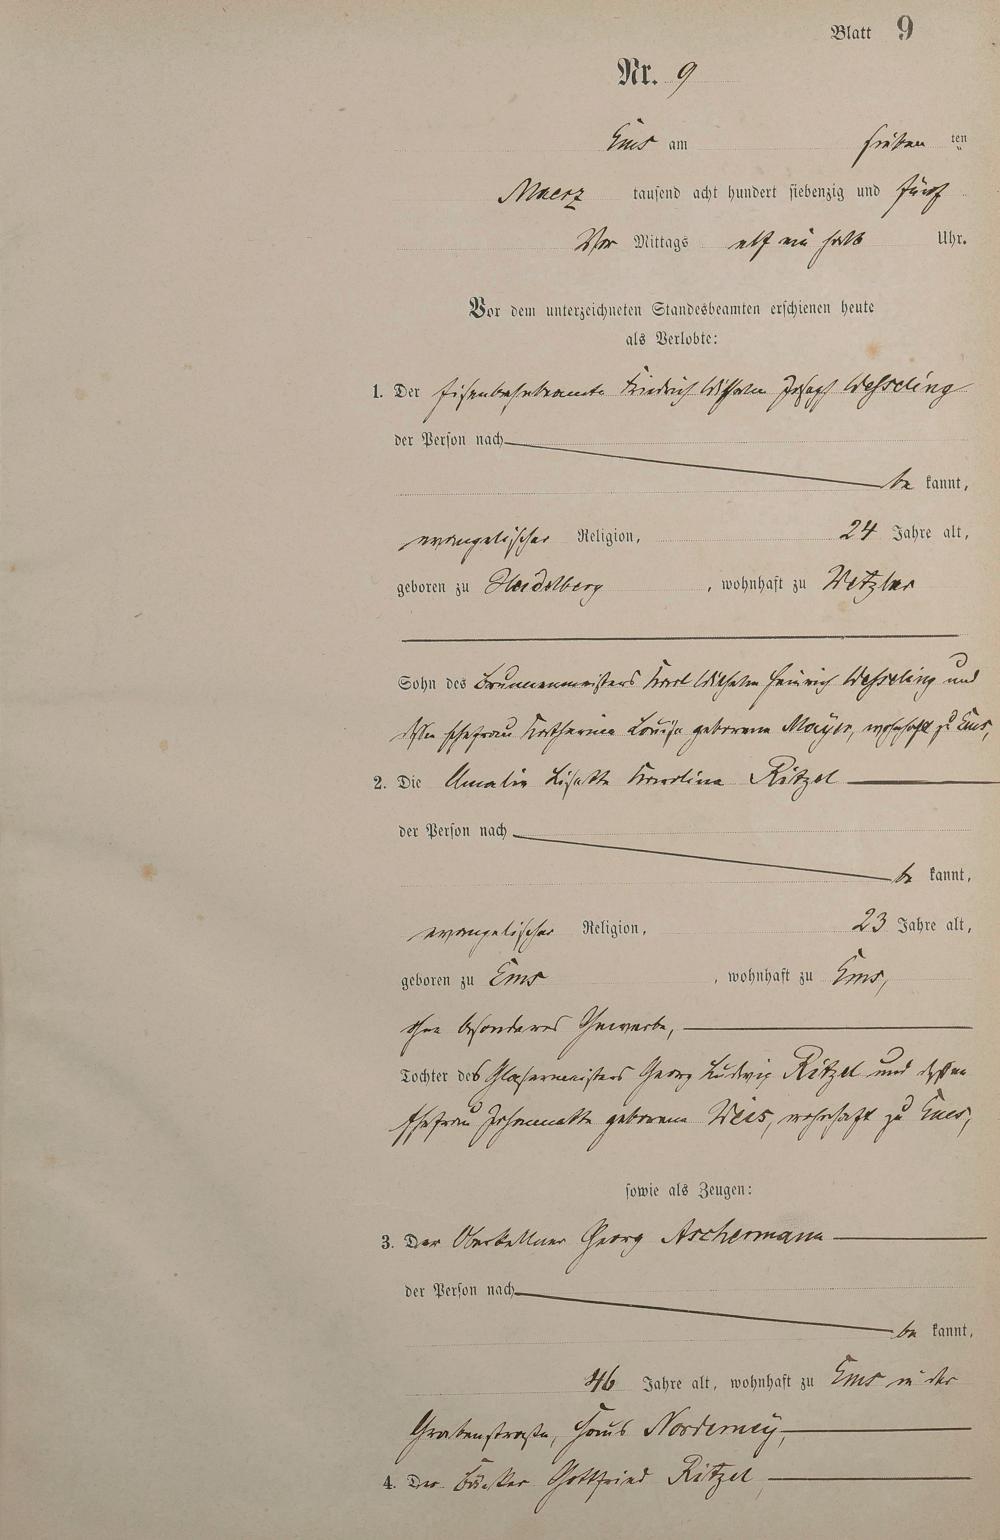 Blatt 9
Nr. 9
Ems am sieben ten
Maerz tausend acht hundert siebenzig und fünf
Vor Mittags elf ein halb Uhr.
Vor dem unterzeichneten Standesbeamten erschienen heute
als Verlobte:
1. Der Eisenbahnbeamte Friedrich Wilhelm Joseph Wesseling
der Person nach
be kannt,
evangelischer Religion, 24 Jahre alt,
geboren zu Heidelberg, wohnhaft zu Wetzlar
Sohn des Brunnenmeisters Karl Wilhelm Heinrich Wesseling und
dessen Ehefrau Katharina Louise geborene Mayer, wohnhaft zu Ems,
2. Die Amalie Lisette Karolina Ritzel
der Person nach
be kannt,
evangelischer Religion, 23 Jahre alt,
geboren zu Ems, wohnhaft zu Ems,
ohne besonderes Gewerbe,
Tochter des Glasermeisters Georg Ludwig Ritzel und dessen
Ehefrau Johannette geborene Weis, wohnhaft zu Ems,
sowie als Zeugen:
3. Der Oberkellner Georg Aschermann
der Person nach
be kannt,
46 Jahre alt, wohnhaft zu Ems in der
Grabenstraße, Haus Norderney,
4. Der Bäcker Gottfried Ritzel